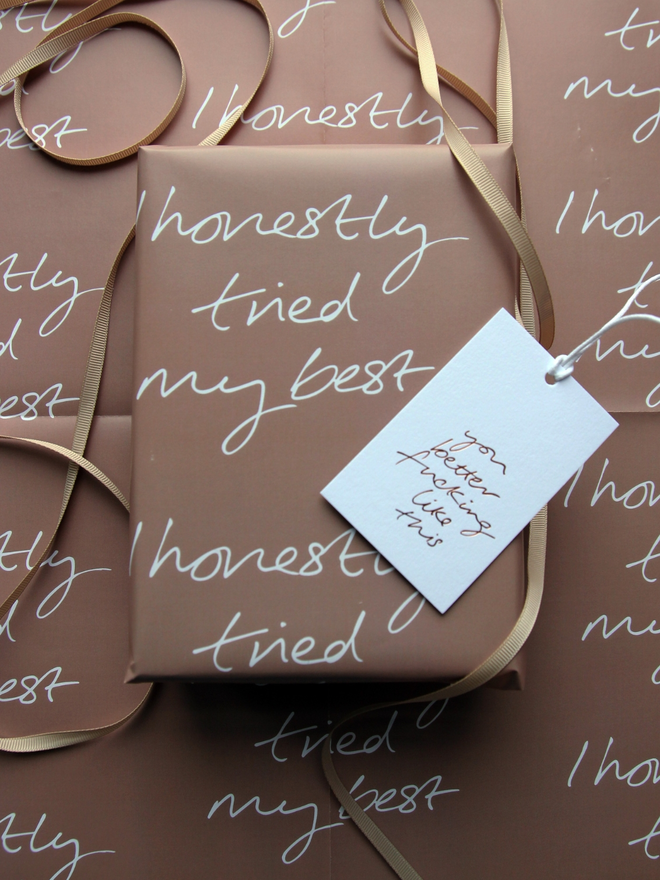 I honestly
I honestly
tried
my best
you
better
fucking
like
this
I honestly
tried
tried
my best